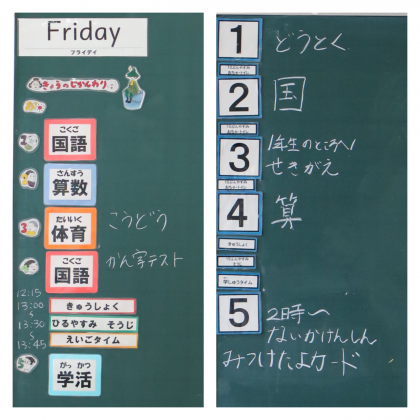 Friday
フライデイ
きょうのじかんわり
こくご
国語
さんすう
算数
3
たいいく
体育
こうどう
こくご
国語
かん字テスト
12:15
13:00
きゅうしょく
～
13:30
ひるやすみ そうじ
～
13:45
えいごタイム
5
がっ かつ
学活
1
どうとく
2
国
3
1年生のところへ
せきがえ
4
算
きゅうしょく
学しゅうタイム
5
2時～
ないかけんしん
みつけたよカード